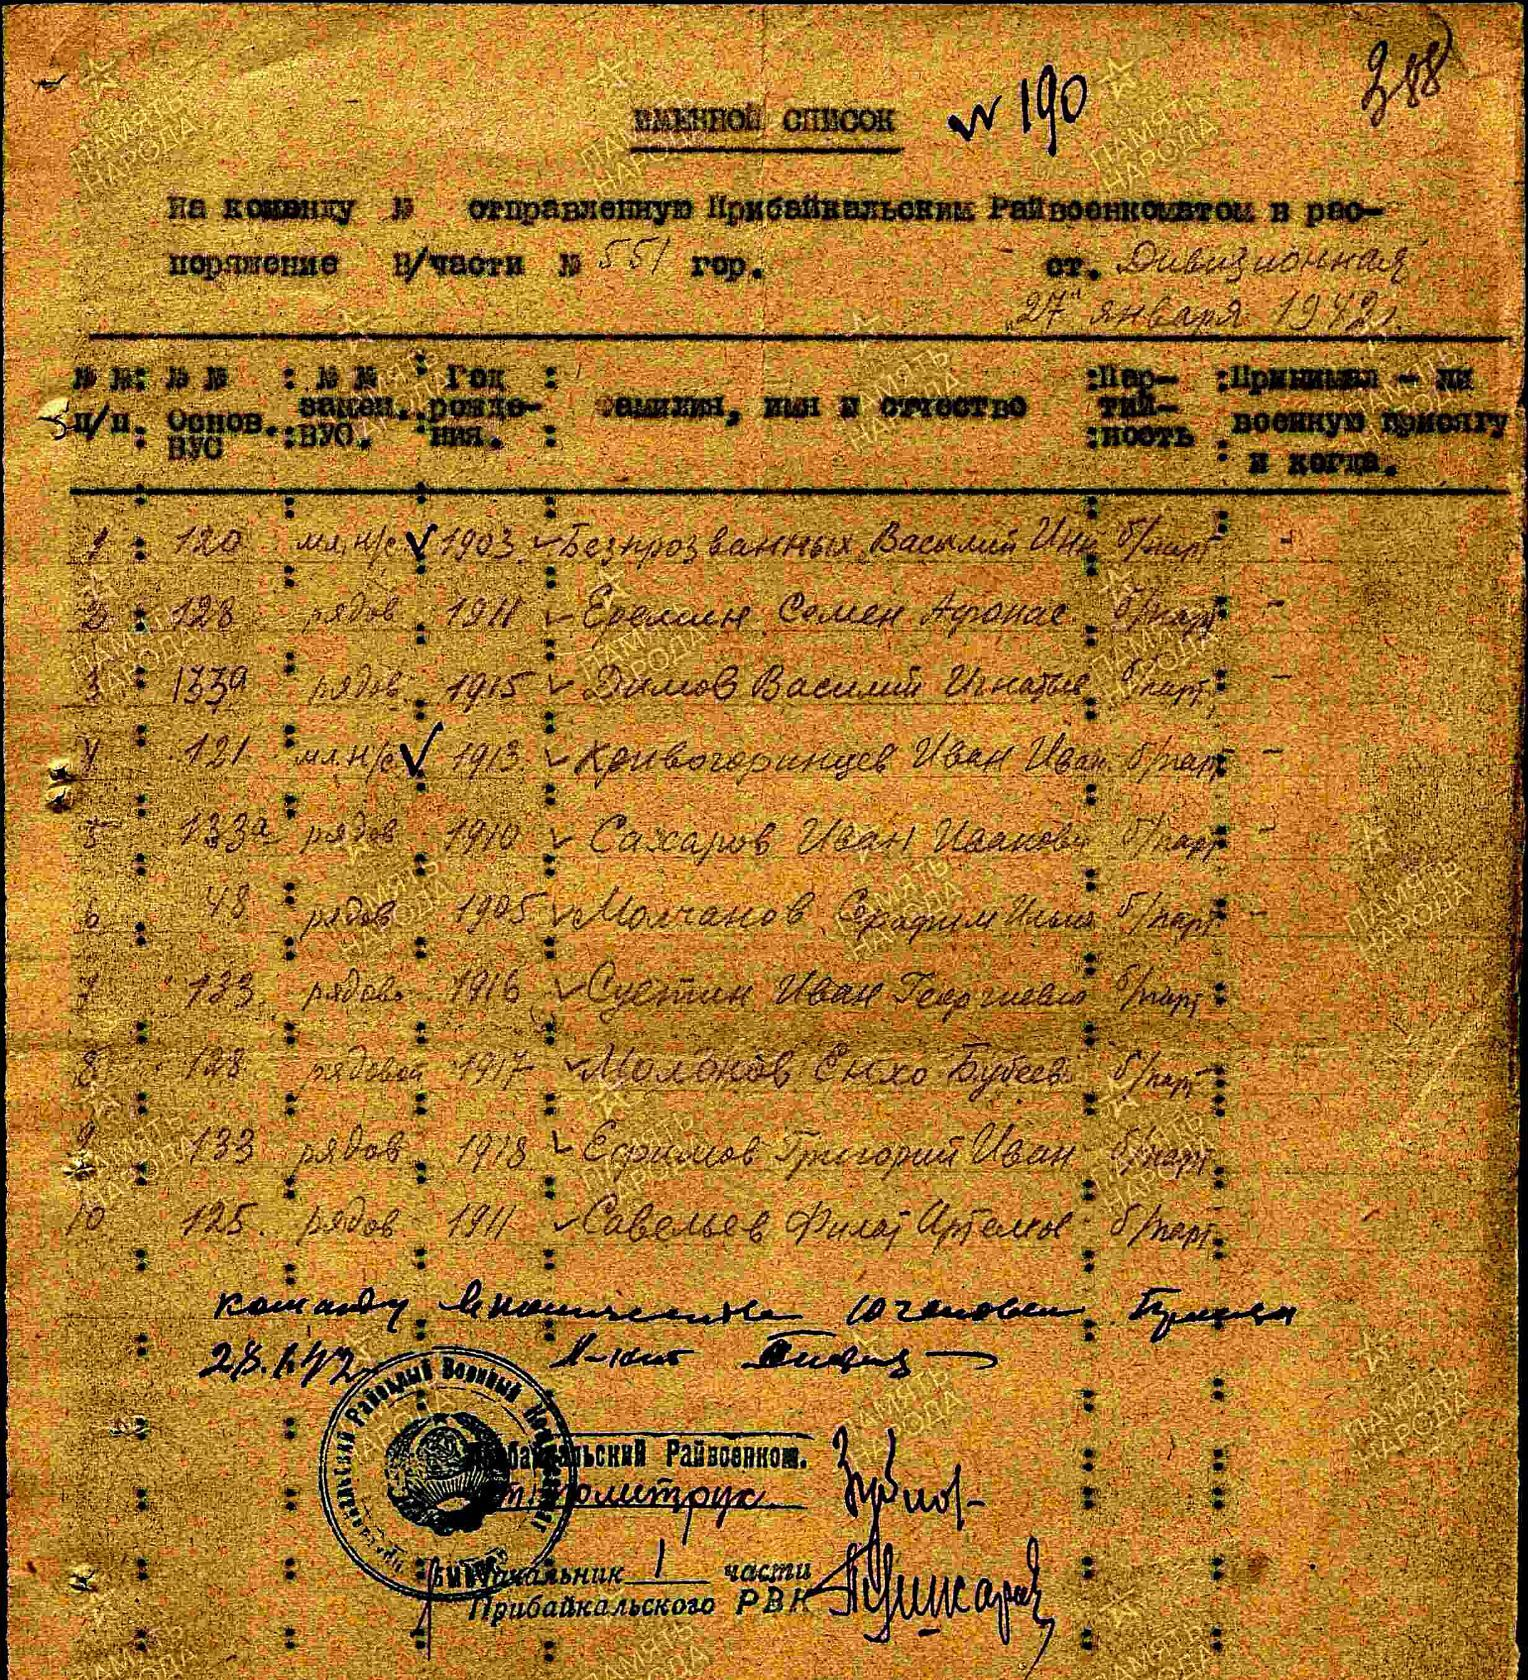 388
ИМЕННОЙ СПИСОК № 190
На команду № отправленную Прибайкальским Райвоенкоматом в рас-
поряжение В/части № 551 гор. ст. Дивизионная
"27" января 1942г.
№ №: № № : № № : Год : :Пар- :Принимал - ли
п/п. Основ. замен. рожде- Фамилия, имя и отчество тий- военную присягу
ВУС :ВУС. ния. :ность и когда.
1 120 мл.н/с 1903 Безпрозванных Василий Инн б/парт -
2 128 рядов 1911 Еремин Семен Афонас б/парт -
3 133а рядов 1915 Димов Василий Игнатье б/парт -
4 121 мл.н/с 1913 Кривогорницев Иван Иван. б/парт -
5 133а рядов 1910 Сахаров Иван Иванови б/парт -
6 48 рядов 1905 Молчанов Серафим Ильич б/парт -
7 133 рядов 1916 Суетин Иван Георгиевич б/парт
8 128 рядовой 1917 Молонов Енхо Бубеев б/парт
9 133 рядов 1918 Ефимов Григорий Иван б/парт
10 125. рядов 1911 Савельев Филат Артемов б/парт
команду в количестве 10 человек
28.1.42
Районный Военный
Прибайкальский Райвоенком.
политрук
Начальник 1 части
Прибайкальского РВК
ПАМЯТЬ НАРОДА